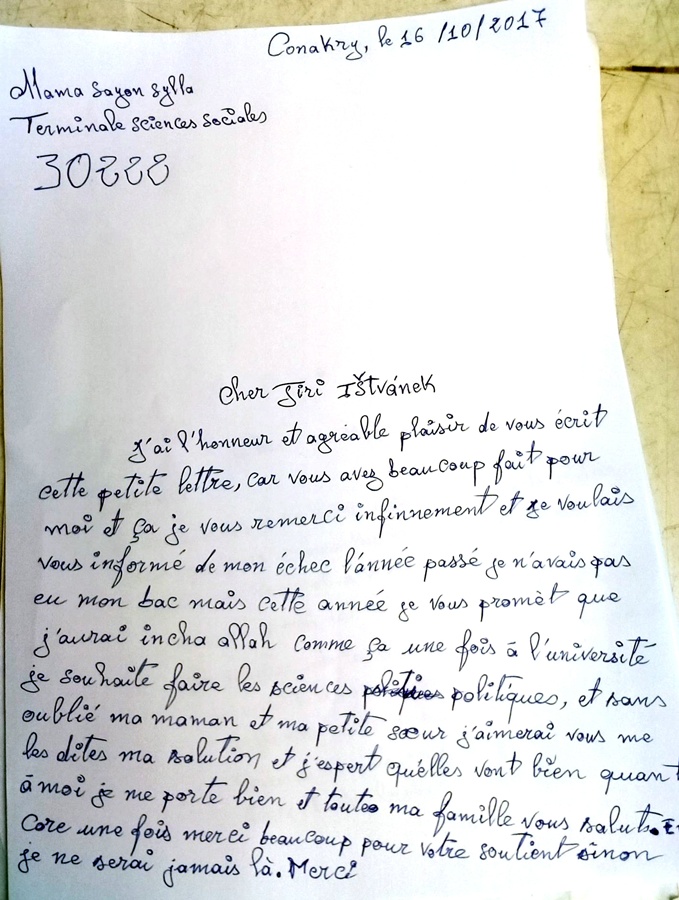 Conakry, le 16/10/2017
Mama Sayon Sylla
Terminale sciences sociales
30222
Cher Jiri Ištvánek
J'ai l'honneur et agréable plaisir de vous écrit
cette petite lettre, car vous avez beaucoup fait pour
moi et ça je vous remerci infinnement et je voulais
vous informé de mon échec l'année passé je n'avais pas
eu mon bac mais cette année je vous promèt que
j'aurai incha allah comme ça une fois à l'université
je souhaite faire les sciences politiques, et sans
oublié ma maman et ma petite sœur j'aimerai vous me
les dites ma salution et j'espert qu'elles vont bien quant
à moi je me porte bien et toute ma famille vous salut. En
core une fois merci beaucoup pour votre soutient sinon
je ne serai jamais là. Merci